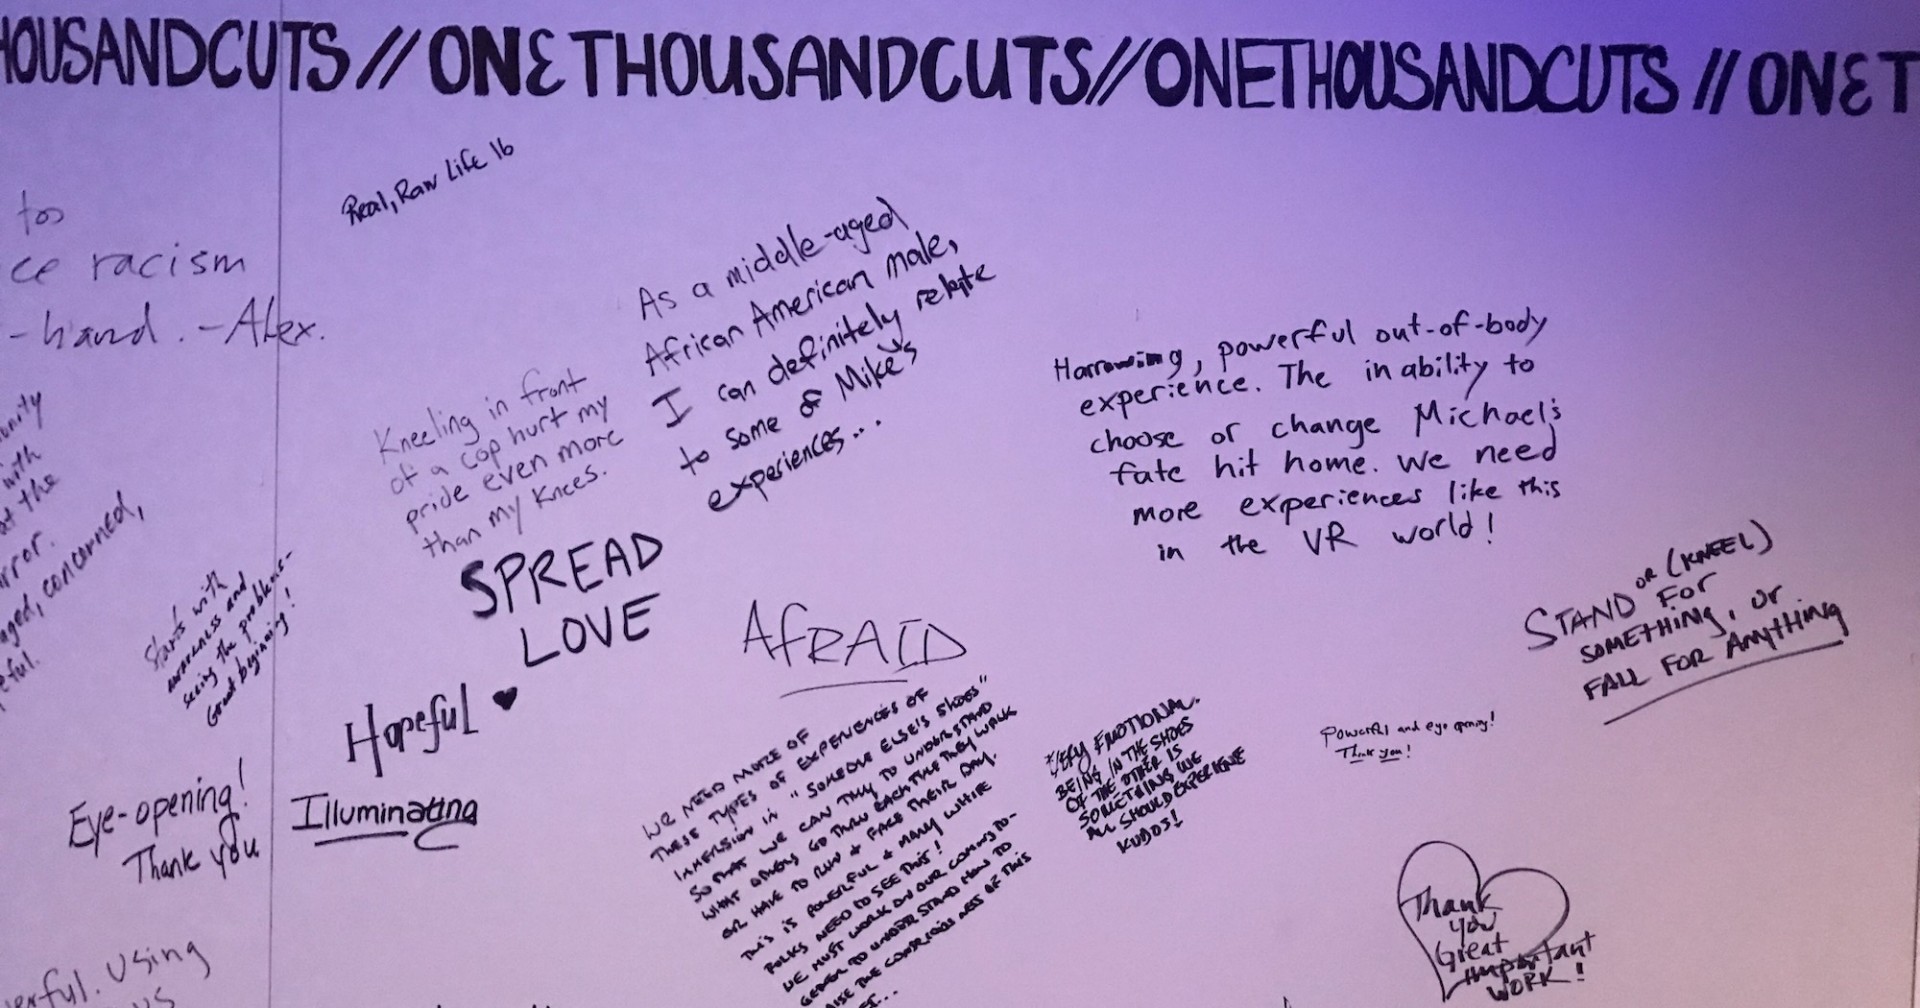 HOUSANDCUTS // ONE THOUSANDCUTS // ONETHOUSANDCUTS // ONE T
Real, Raw Life 16
to
ce racism
-hand. -Alex.
As a middle-aged
African American male,
I can definitely relate
to some of Mike's
experiences...
Kneeling in front
of a cop hurt my
pride even more
than my knees.
Harrowing, powerful out-of-body
experience. The inability to
choose or change Michael's
fate hit home. We need
more experiences like this
in the VR world!
with
at the
rror.
aged, concerned,
eful.
Starts with
awareness and
seeing the problems-
Good beginning!
SPREAD
LOVE
STAND OR (KNEEL)
FOR
SOMETHING, or
FALL FOR ANYTHING
AfRAID
Hopeful ♥
Eye-opening!
Thank you
Illuminating
WE NEED MORE OF
THESE TYPES OF EXPERIENCES OF
IMMERSION IN "SOMEONE ELSE'S SHOES"
SO THAT WE CAN TRY TO UNDERSTAND
WHAT OTHERS GO THRU EACH TIME THEY WALK
OR HAVE TO RUN & FACE THEIR DAY.
THIS IS POWERFUL & MANY WHITE
FOLKS NEED TO SEE THIS!
WE MUST WORK ON OUR COMING TO-
GETHER TO UNDERSTAND HOW TO
RAISE THE CONSCIOUSNESS OF THIS
VERY EMOTIONAL.
BEING IN THE SHOES
OF THE OTHER IS
SOMETHING WE
ALL SHOULD EXPERIENE
KUDOS!
Powerful and eye opening!
Thank you!
Thank
you
Great
Important
WORK!
erful. Using
us